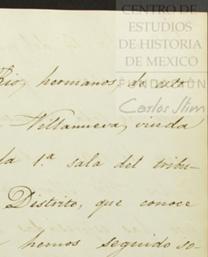 CENTRO DE
ESTUDIOS
DE HISTORIA
DE MEXICO
FUNDACIÓN
Carlos Slim
Rio, hermanos, de esta
Villanueva, viuda
la 1ª sala del tribu-
Distrito, que conoce
hemos seguido so-